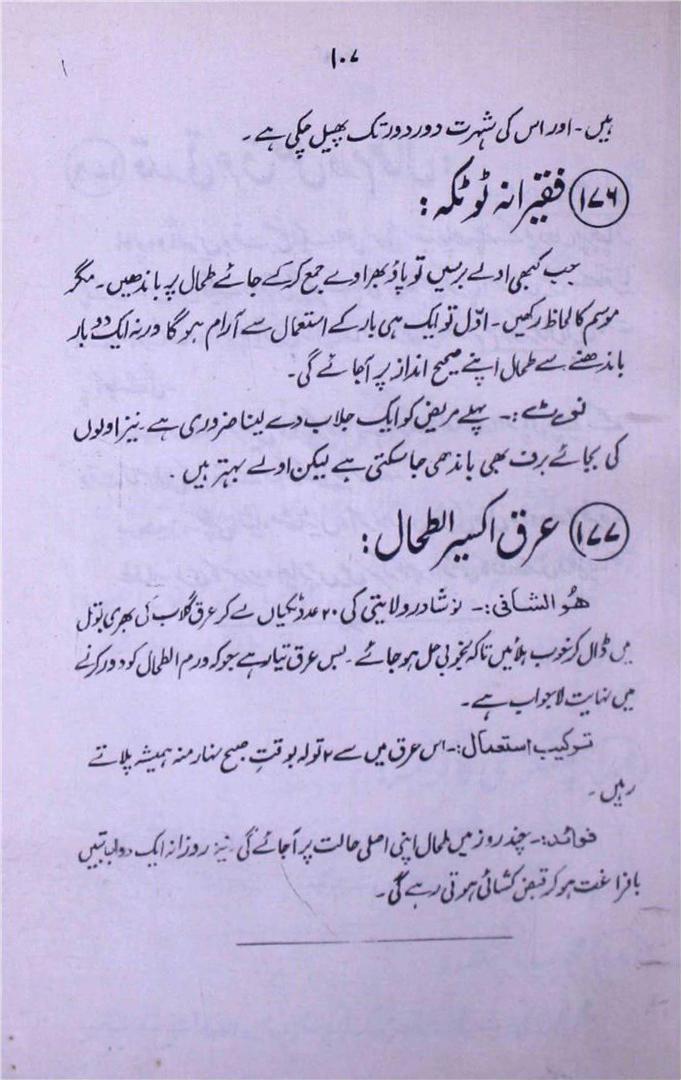 ۱۰۷
ہیں ۔ اور اس کی شہرت دور دور تک پھیل چکی ہے ۔
۱۷۶ فقیرانہ ٹوٹکہ :
جب کبھی اولے برسیں تو پاؤ بھر اولے جمع کرکے جائے طحال پر باندھیں ۔ مگر
موسم کا لحاظ رکھیں ۔ اوّل تو ایک ہی بار کے استعمال سے آرام ہو گا ورنہ ایک دو بار
باندھنے سے طحال اپنے صحیح انداز پر آجائے گی ۔
نوٹ :۔ پہلے مریض کو ایک جلاب دے لینا ضروری ہے ۔ نیز اولوں
کی بجائے برف بھی باندھی جا سکتی ہے لیکن اولے بہتر ہیں ۔
۱۷۷ عرق اکسیر الطحال :
ھُوالشافی :۔ نوشادر ولایتی کی ۲۰ عدد ٹکیاں لے کر عرق گلاب کی بھری بوتل
میں ڈال کر خوب ہلائیں تاکہ بخوبی حل ہو جائے ۔ بس عرق تیار ہے جو کہ ورم الطحال کو دور کرنے
میں نہایت لاجواب ہے ۔
ترکیب استعمال :۔ اس عرق میں سے ۲ تولہ بوقتِ صبح نہار منہ ہمیشہ پلاتے
رہیں ۔
فوائد :۔ چند روز میں طحال اپنی اصلی حالت پر آجائے گی نیز روزانہ ایک دو اجابتیں
بافراغت ہو کر قبض کشائی ہوتی رہے گی ۔